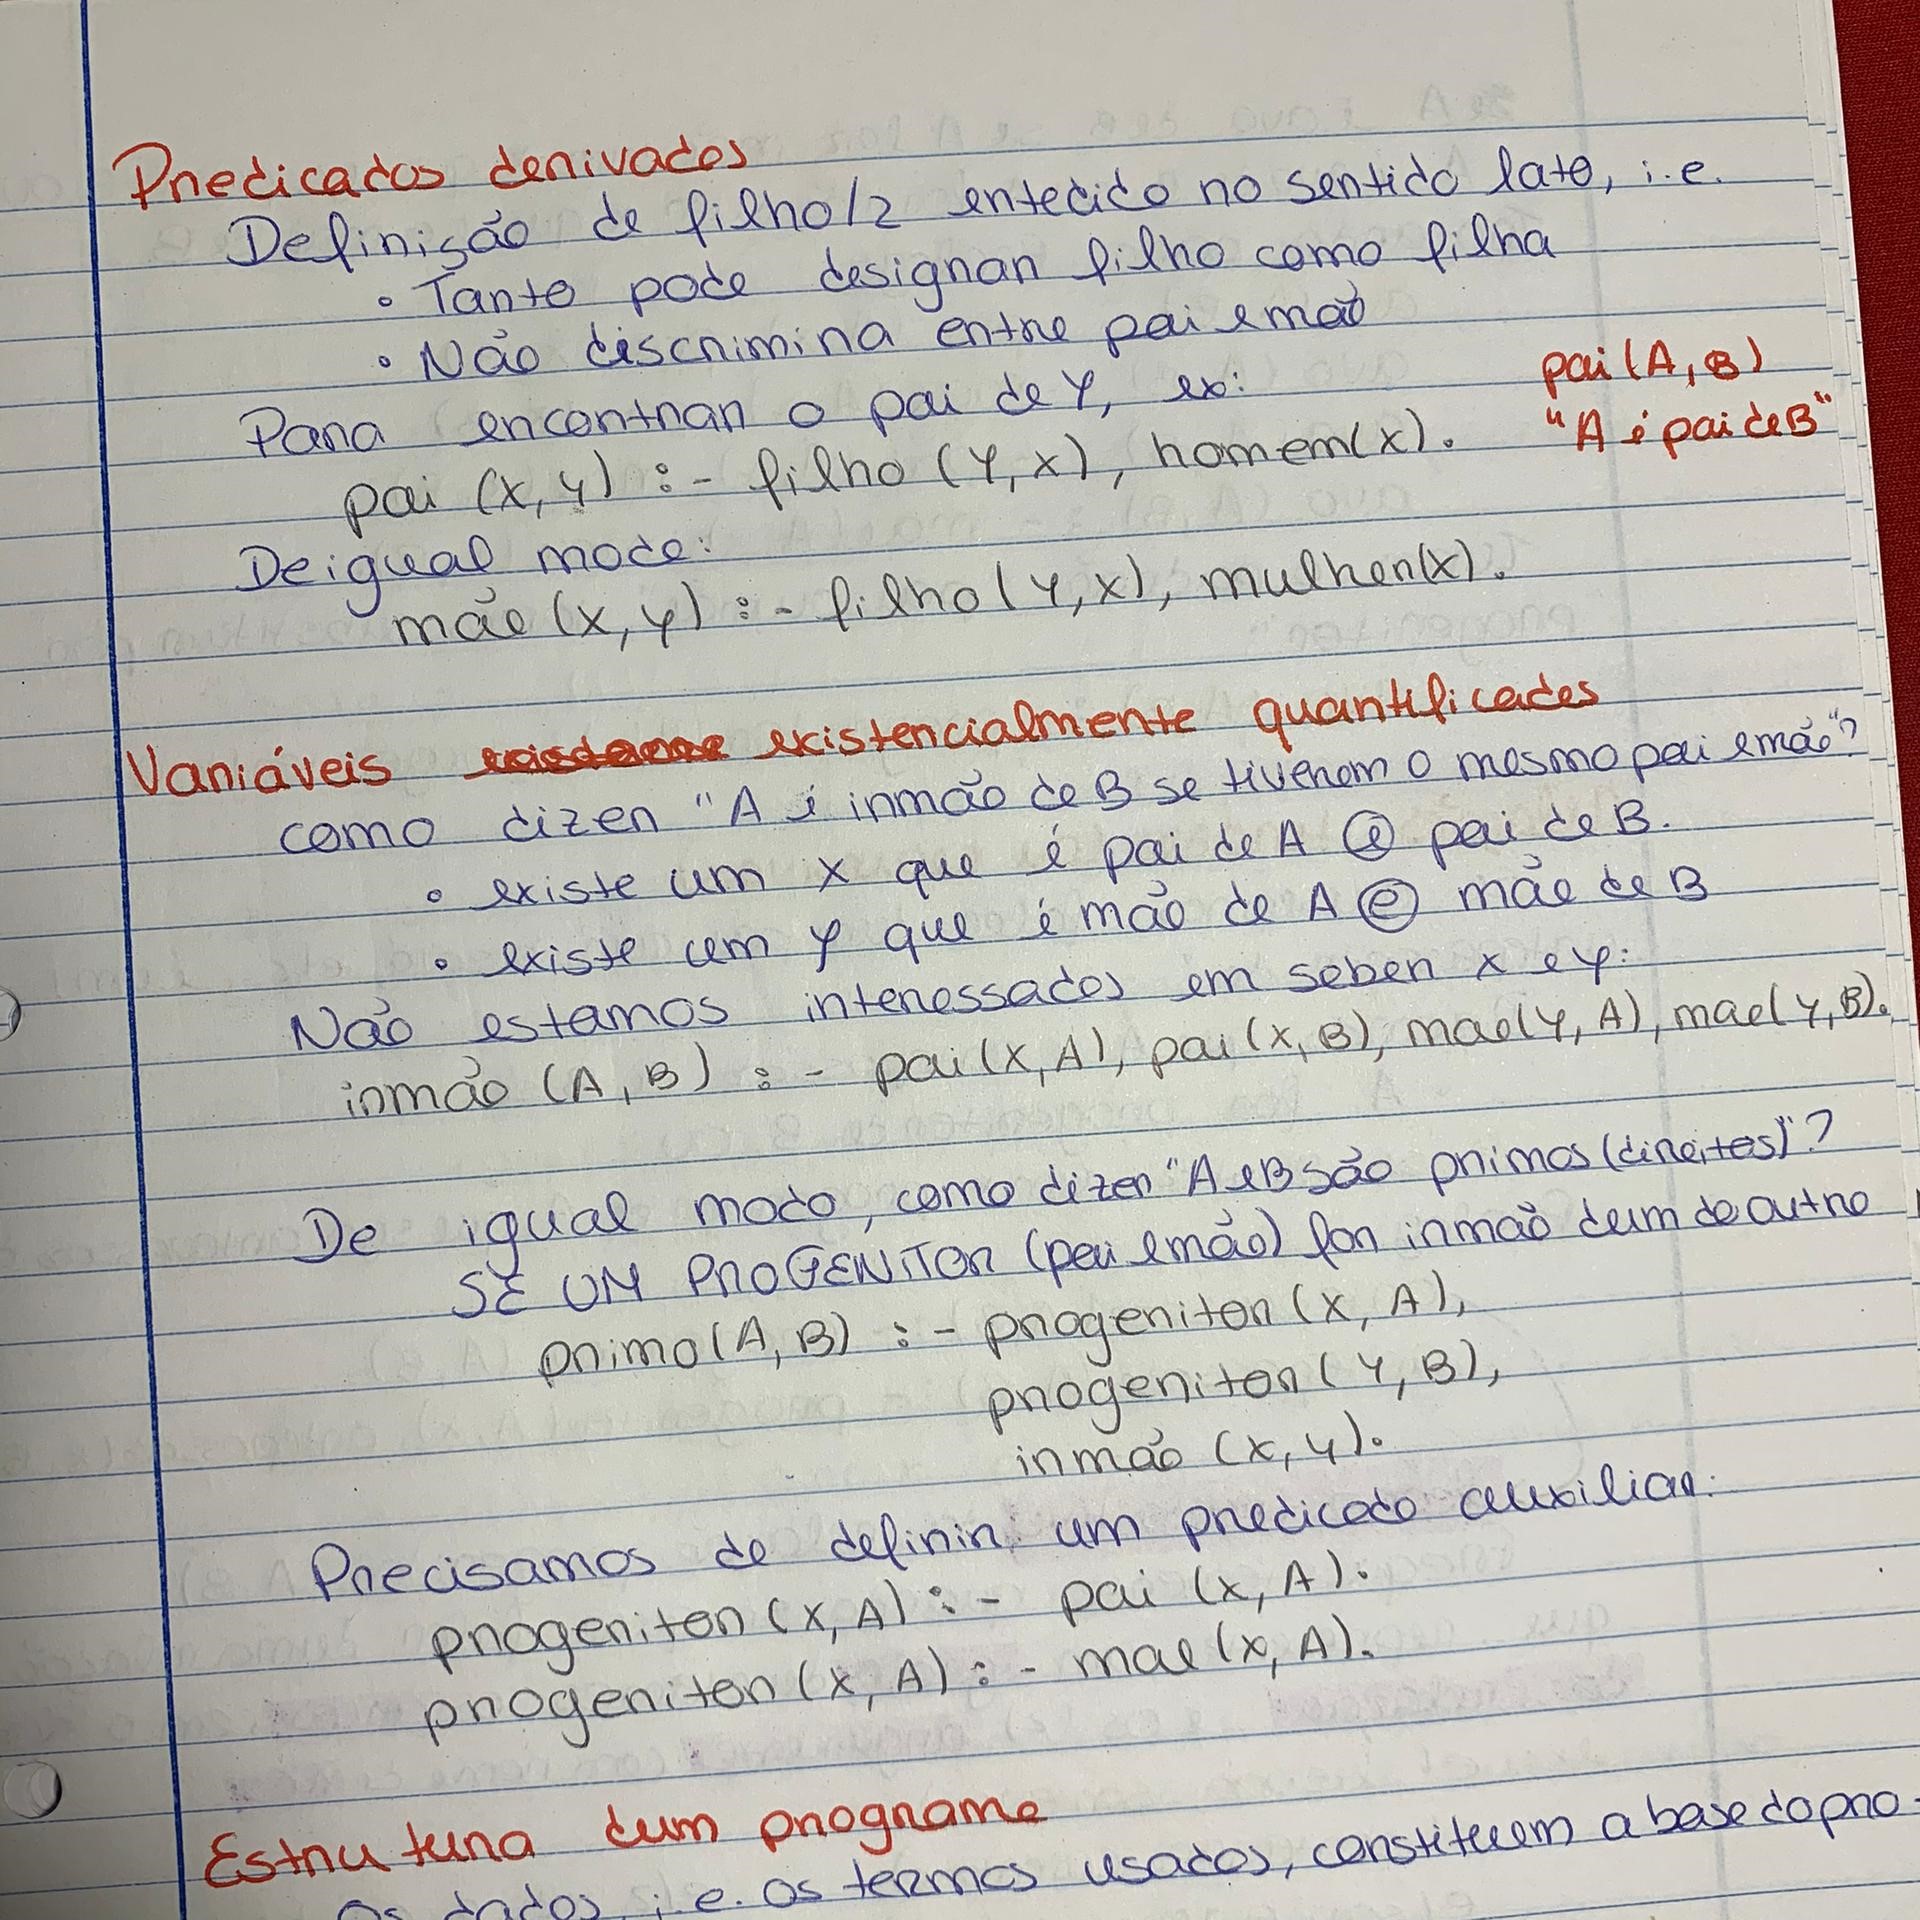 Predicados derivados
Definisão de filho/2 entedido no sentido lato, i.e.
• Tanto pode designar filho como filha
• Não discrimina entre pai e mão
Para encontrar o pai de Y, ex:
pai(A,B)
pai (X,Y) :- filho (Y,X), homem(X).
"A é pai de B"
De igual modo:
mãe (X,Y) :- filho(Y,X), mulher(X).
Variáveis existencialmente quantificades
como dizer "A é irmão de B se tiverem o mesmo pai e mão"?
• existe um X que é pai de A e pai de B.
• existe um Y que é mão de A e mãe de B
Não estamos interessados em saber X e Y:
irmão (A,B) :- pai(X,A), pai(X,B), mae(Y,A), mae(Y,B).
De igual modo, como dizer "A e B são primos (direitos)"?
SE UM PROGENITOR (pai e mão) for irmão dum do outro
primo(A,B) :- progenitor(X,A),
progenitor(Y,B),
irmão (X,Y).
Precisamos de definir um predicado auxiliar:
progenitor(X,A) :- pai (X,A).
progenitor(X,A) :- mae(X,A).
Estrutura dum programa
Os dados, i.e. os termos usados, constituem a base do pro-